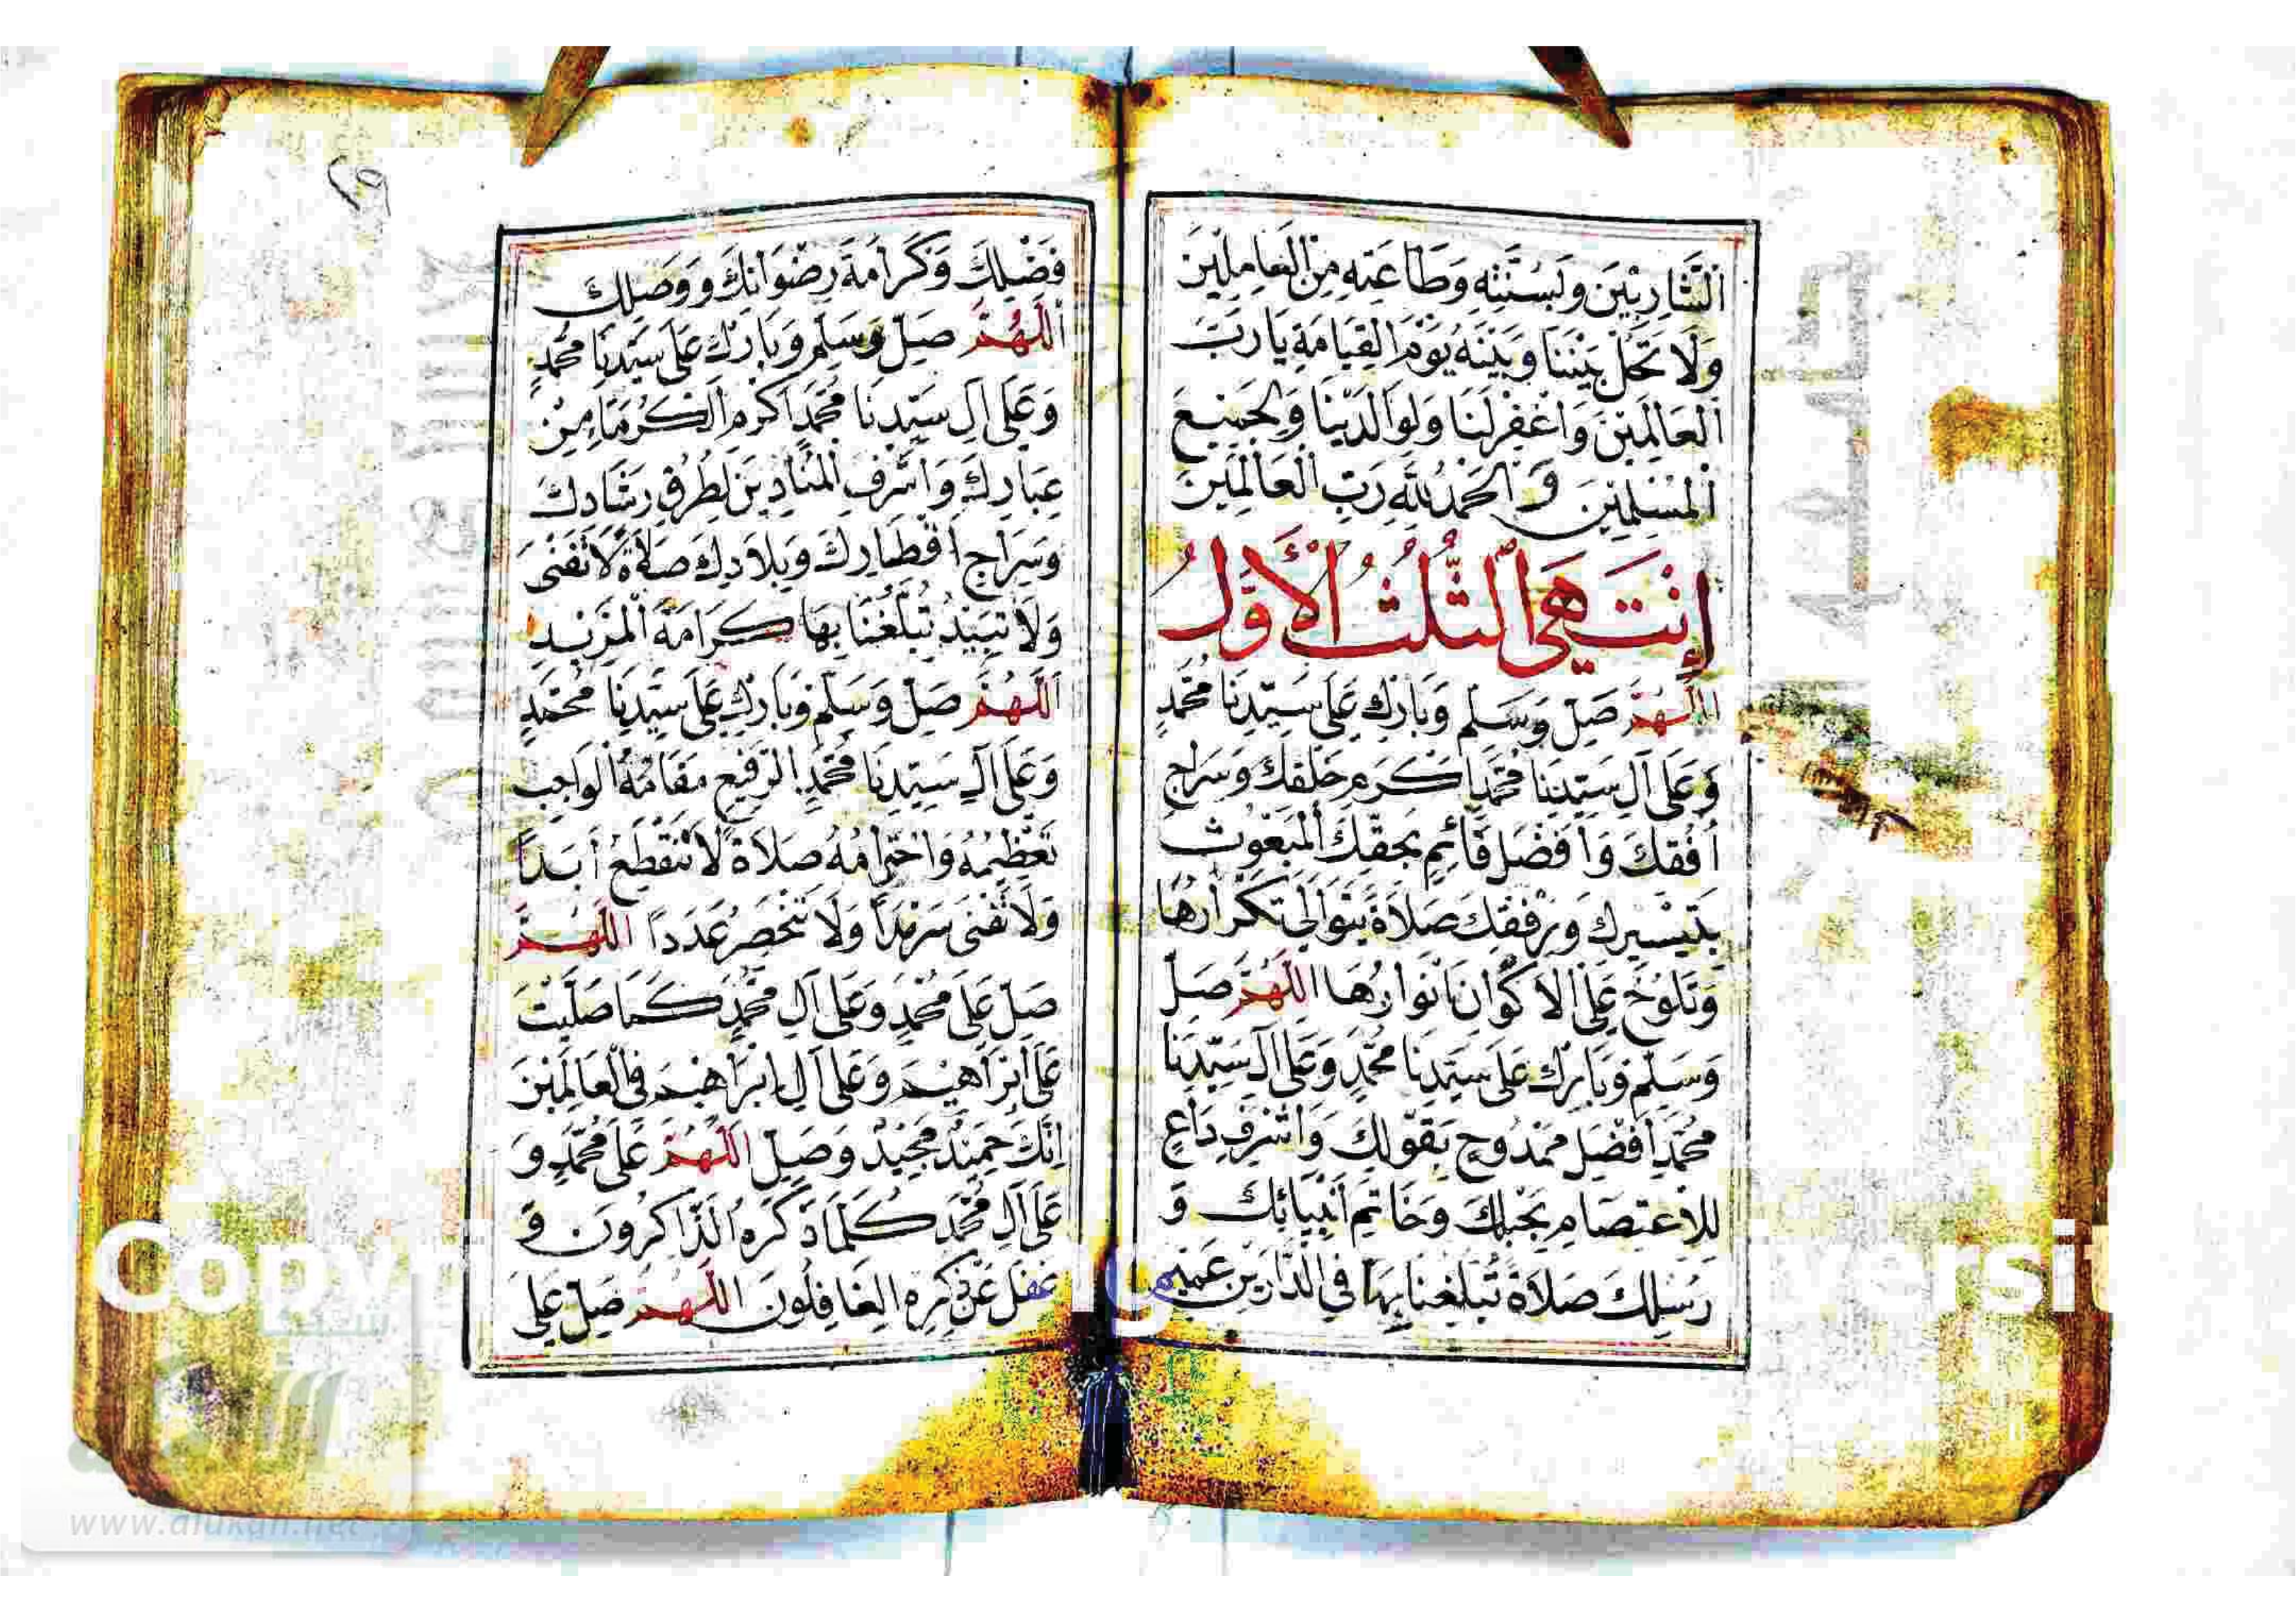 اَلشَّارِبِيْنَ وَلِسُنَّتِهِ وَطَاعَتِهِ مِنَ الْعَامِلِيْنَ
وَلَا تَحُلْ بَيْنَنَا وَبَيْنَهُ يَوْمَ الْقِيَامَةِ يَا رَبَّ
اَلْعَالَمِيْنَ وَاغْفِرْ لَنَا وَلِوَالِدَيْنَا وَلِجَمِيْعِ
اَلْمُسْلِمِيْنَ وَالْحَمْدُ لِلّٰهِ رَبِّ الْعَالَمِيْنَ
إِنْتَهَى الثُّلُثُ الْأَوَّلُ
اَللّٰهُمَّ صَلِّ وَسَلِّمْ وَبَارِكْ عَلَى سَيِّدِنَا مُحَمَّدٍ
وَعَلَى آلِ سَيِّدِنَا مُحَمَّدٍ اَكْرَمِ خَلْقِكَ وَسِرَاجِ
أُفُقِكَ وَأَفْضَلِ قَائِمٍ بِحَقِّكَ الْمَبْعُوْثِ
بِتَيْسِيْرِكَ وَرِفْقِكَ صَلَاةً يَتَوَالَى تَكْرَارُهَا
وَتَلُوْحُ عَلَى الْاَكْوَانِ اَنْوَارُهَا اللّٰهُمَّ صَلِّ
وَسَلِّمْ وَبَارِكْ عَلَى سَيِّدِنَا مُحَمَّدٍ وَعَلَى آلِ سَيِّدِنَا
مُحَمَّدٍ اَفْضَلِ مَمْدُوْحٍ بِقَوْلِكَ وَاَشْرَفِ دَاعٍ
لِلْاِعْتِصَامِ بِحَبْلِكَ وَخَاتَمِ اَنْبِيَائِكَ وَ
رُسُلِكَ صَلَاةً تُبَلِّغُنَا بِهَا فِي الدَّارَيْنِ عَمِيْمَ
فَضْلِكَ وَكَرَامَةَ رِضْوَانِكَ وَوَصْلِكَ
اَللّٰهُمَّ صَلِّ وَسَلِّمْ وَبَارِكْ عَلَى سَيِّدِنَا مُحَمَّدٍ
وَعَلَى آلِ سَيِّدِنَا مُحَمَّدٍ اَكْرَمِ الْكُرَمَاءِ مِنْ
عِبَادِكَ وَاَشْرَفِ الْمُنَادِيْنَ لِطُرُقِ رَشَادِكَ
وَسِرَاجِ اَقْطَارِكَ وَبِلَادِكَ صَلَاةً لَا تَفْنَى
وَلَا تَبِيْدُ تُبَلِّغُنَا بِهَا كَرَامَةَ الْمَزِيْدِ
اَللّٰهُمَّ صَلِّ وَسَلِّمْ وَبَارِكْ عَلَى سَيِّدِنَا مُحَمَّدٍ
وَعَلَى آلِ سَيِّدِنَا مُحَمَّدٍ الرَّفِيْعِ مَقَامُهُ الْوَاجِبِ
تَعْظِيْمُهُ وَاحْتِرَامُهُ صَلَاةً لَا تَنْقَطِعُ أَبَدًا
وَلَا تَفْنَى سَرْمَدًا وَلَا تَنْحَصِرُ عَدَدًا اللّٰهُمَّ
صَلِّ عَلَى مُحَمَّدٍ وَعَلَى آلِ مُحَمَّدٍ كَمَا صَلَّيْتَ
عَلَى اِبْرَاهِيْمَ وَعَلَى آلِ اِبْرَاهِيْمَ فِي الْعَالَمِيْنَ
اِنَّكَ حَمِيْدٌ مَجِيْدٌ وَصَلِّ اللّٰهُمَّ عَلَى مُحَمَّدٍ وَ
عَلَى آلِ مُحَمَّدٍ كُلَّمَا ذَكَرَهُ الذَّاكِرُوْنَ وَ
غَفَلَ عَنْ ذِكْرِهِ الْغَافِلُوْنَ اللّٰهُمَّ صَلِّ عَلَى
www.alukah.net